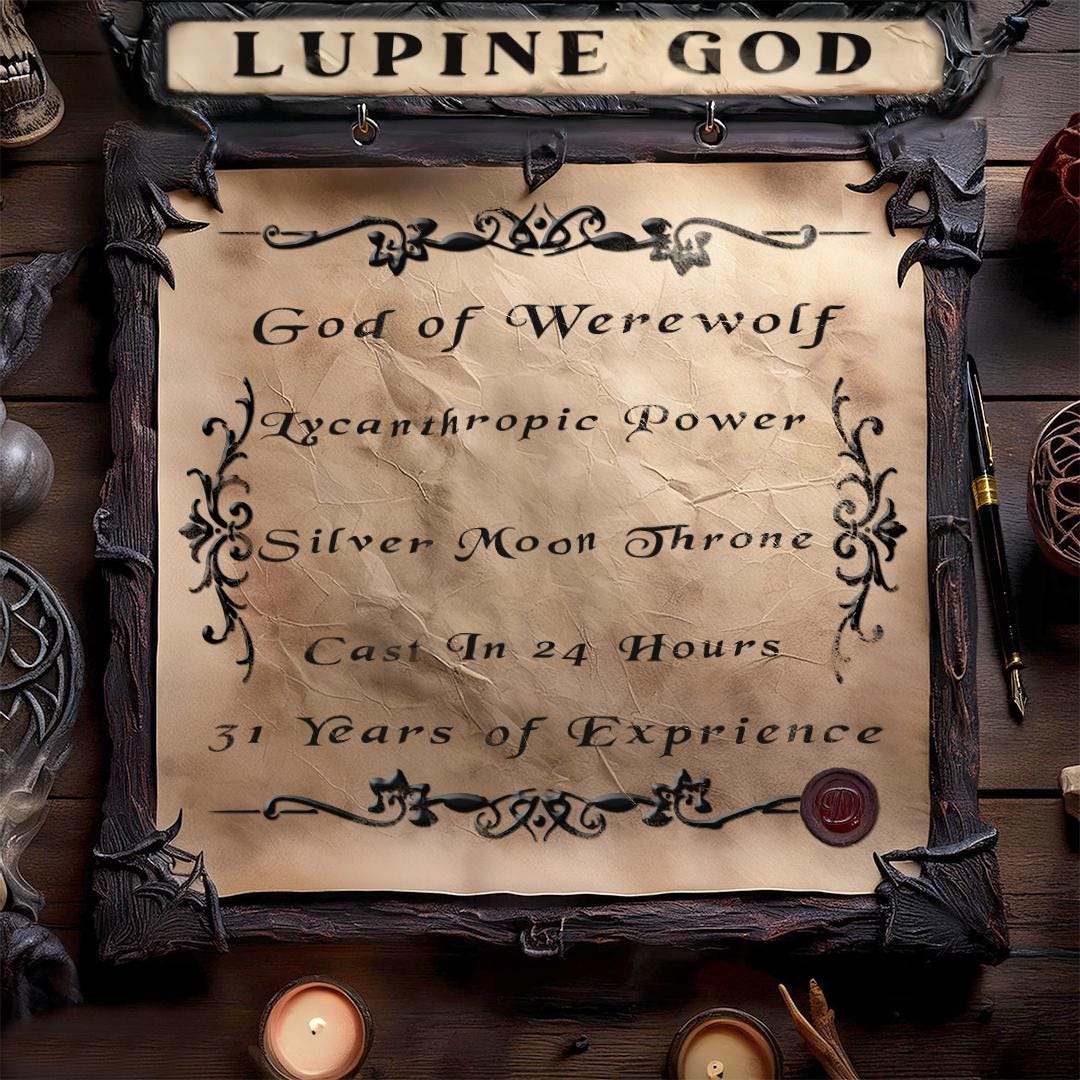 LUPINE GOD
God of Werewolf
Lycanthropic Power
Silver Moon Throne
Cast In 24 Hours
31 Years of Exprience
D